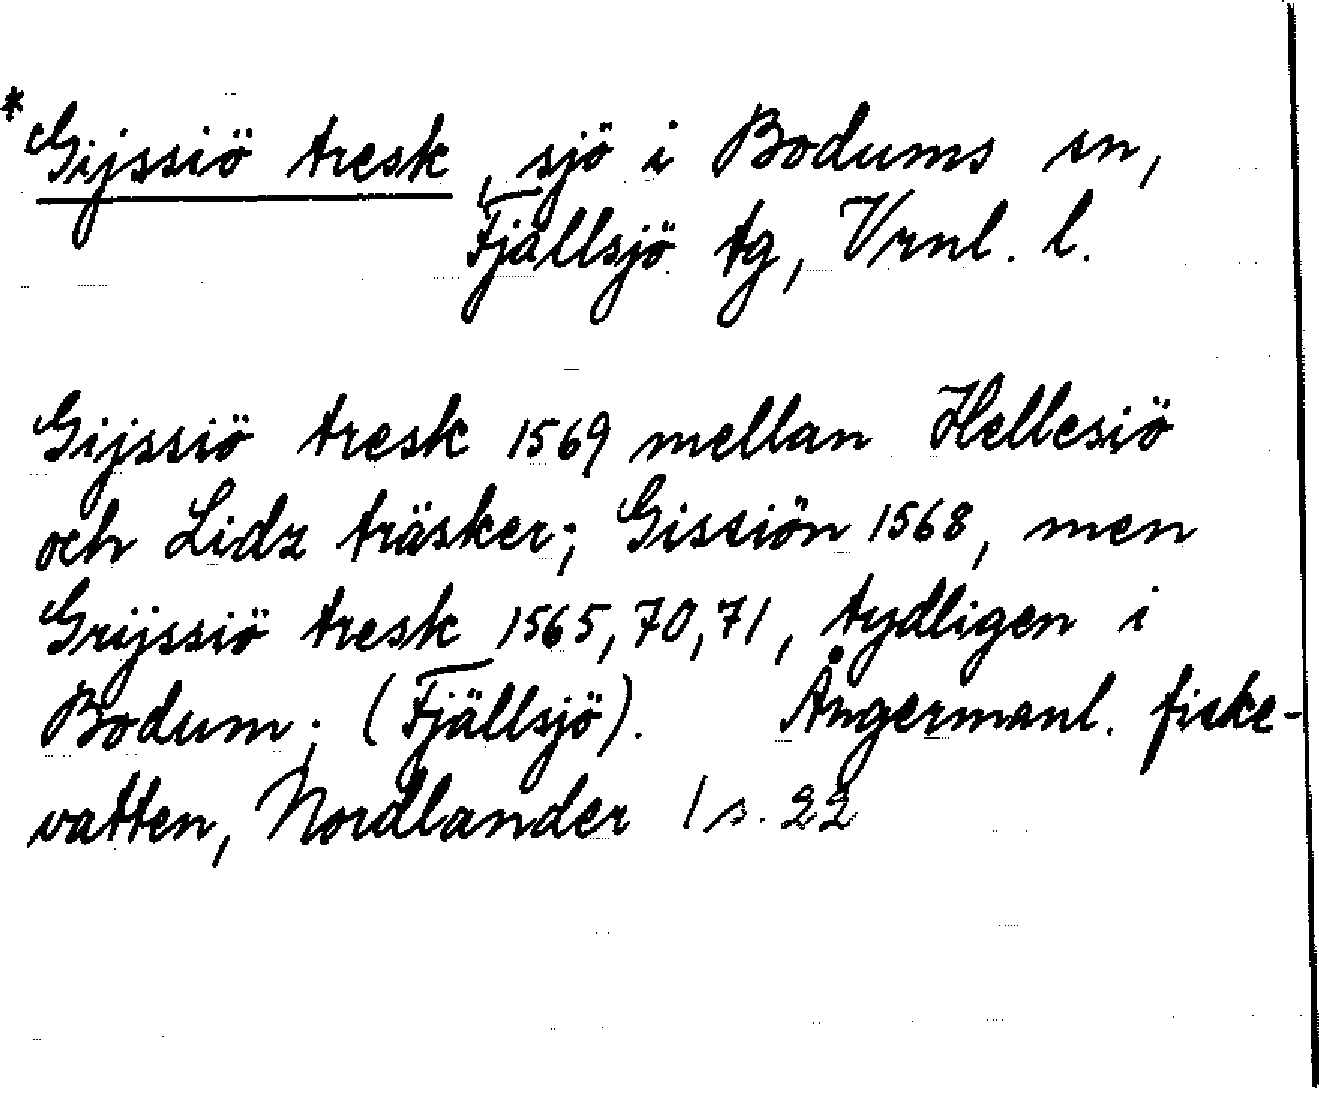 * Gijssiö tresk, sjö i Bodums sn,
Fjällsjö tg, Vrnl. l.
Gijssiö tresk 1569 mellan Hellesiö
och Lidz träsker; Gissiön 1568, men
Grijssiö tresk 1565, 70, 71, tydligen i
Bodum; (Fjällsjö). Ångermanl. fiske-
vatten, Nordlander 1 s. 22